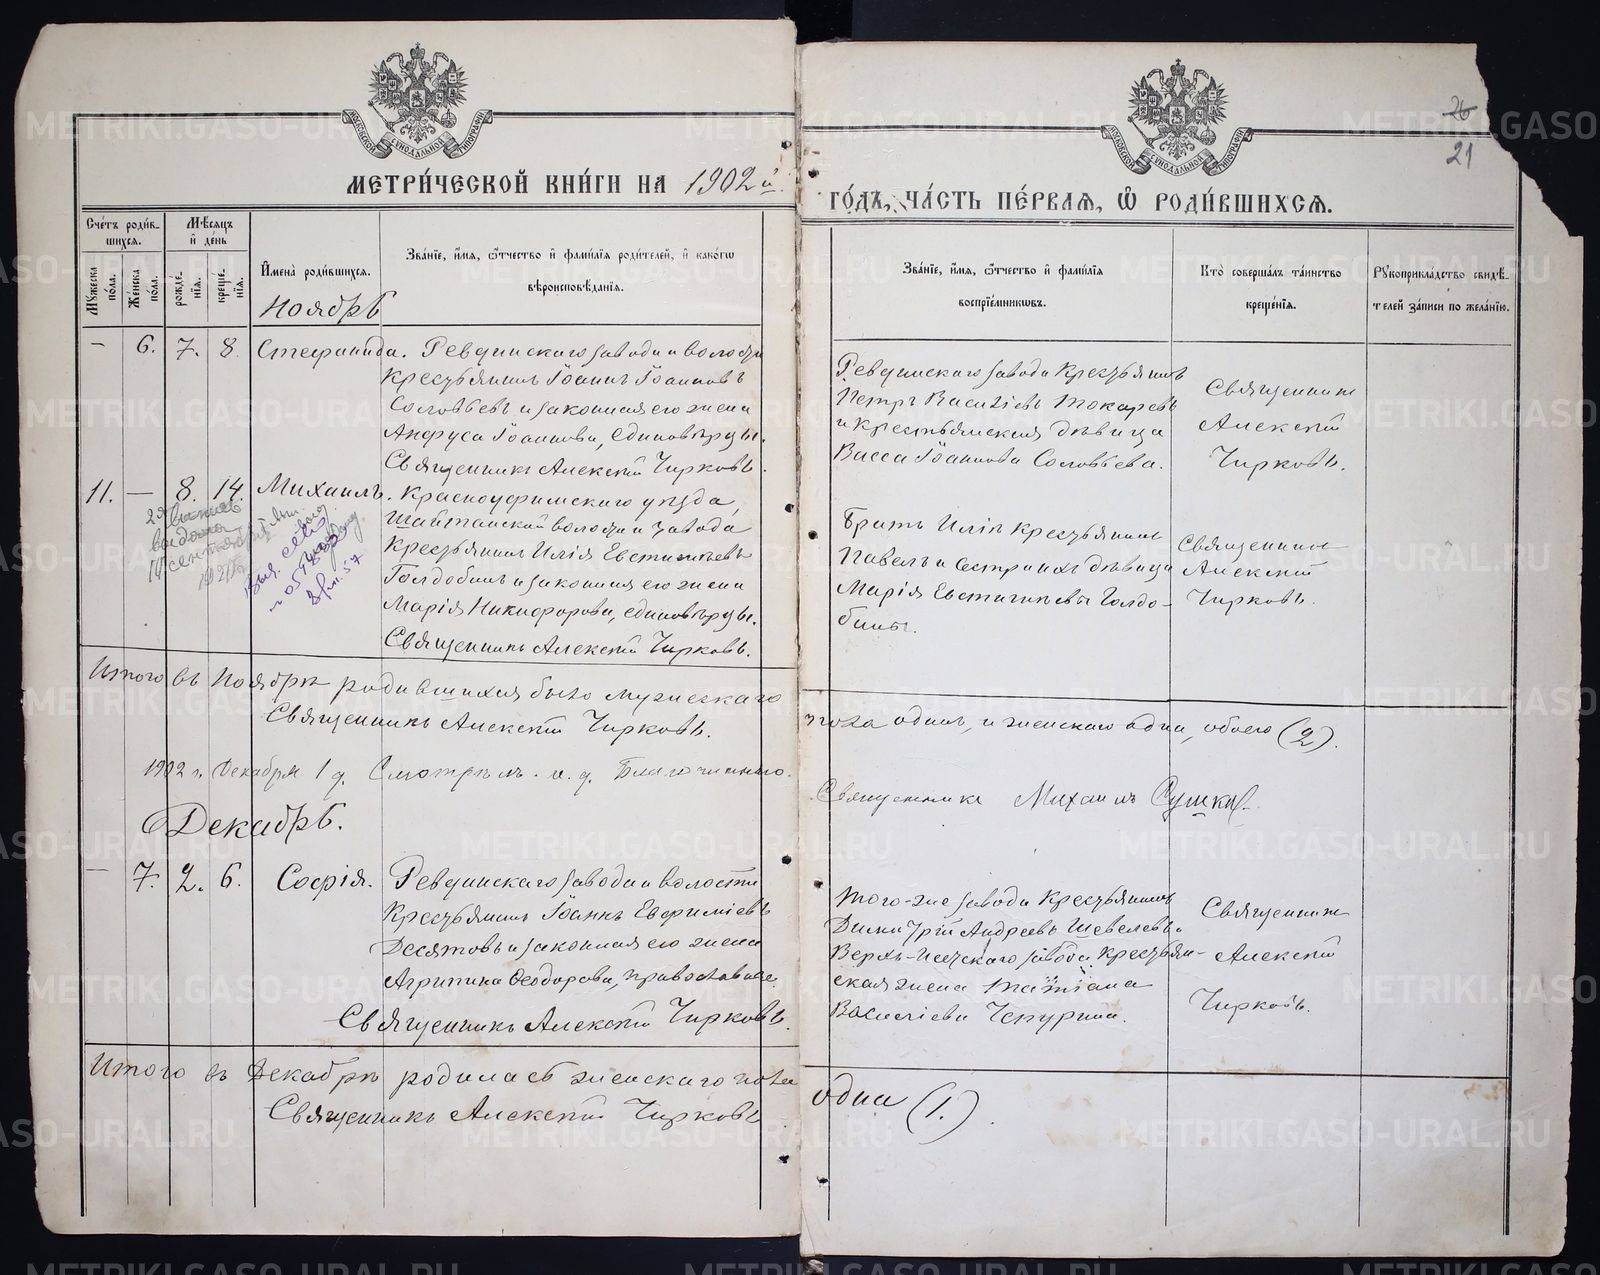 МОСКОВСКОЙ СѴНОДАЛЬНОЙ ТИПОГРАФІИ
МОСКОВСКОЙ СѴНОДАЛЬНОЙ ТИПОГРАФІИ
26
21
МЕТРИ́ЧЕСКОЙ КНИ́ГИ НА 1902 й
ГО́ДЪ, ЧА́СТЬ ПЕ́РВАЯ, Ѽ РОДИ́ВШИХСЯ.
Сче́тъ роди́в-
шихся.
Мѣ́сяцъ
и҆ де́нь
Мꙋжеска по́ла.
Же́нска по́ла.
рожде́-
нїѧ.
креще́-
нїѧ.
И҆мена̀ роди́вшихся.
Ноябрь
Зва́нїе, и҆́мѧ, ѻ҆́тчество и҆ фами́лїѧ роди́телей, и҆ како́гѡ
вѣроисповѣ́данїѧ.
Зва́нїе, и҆́мѧ, ѻ҆́тчество и҆ фами́лїѧ
воспрїе́мникѡвъ.
Кто̀ соверша́лъ та́инство
креще́нїѧ.
Рꙋкоприкла́дство свидѣ́-
телей за́писи по жела́нїю.
– 6. 7. 8 Стефанида. Ревдинскаго завода и волости
Крестьянинъ Іоаннъ Іоанновъ
Соловьевъ и законная его жена
Анфуса Іоаннова, единовѣрцы.
Священникъ Алексѣй Чирковъ.
Ревдинскаго завода Крестьянинъ
Петръ Василіевъ Токаревъ
и Крестьянская дѣвица
Васса Іоаннова Соловьева.
Священникъ
Алексѣй
Чирковъ.
11. – 8. 14. Михаилъ. Красноуфимскаго уѣзда,
Шайтанской волости и завода
Крестьянинъ Илія Евстигнѣевъ
Голдобинъ и законная его жена
Марія Никифорова, единовѣрцы.
Священникъ Алексѣй Чирковъ.
выпись
выдана
сентября
Братъ Иліи Крестьянинъ
Павелъ и Сестра ихъ дѣвица
Марія Евстигнѣевы Голдо-
бины.
Священникъ
Алексѣй
Чирковъ.
Итого въ Ноябрѣ родившихся было мужескаго
пола одинъ, и женскаго одна, обоего (2).
Священникъ Алексѣй Чирковъ.
1902 г. Декабря 1 д. Смотрѣлъ и. д. Благочиннаго
Священникъ Михаилъ
Декабрь.
– 7. 2. 6. Софія. Ревдинскаго завода и волости
Крестьянинъ Іоаннъ Евфиміевъ
Десятовъ и законная его жена
Агрипина Ѳеодорова, православные.
Священникъ Алексѣй Чирковъ.
Того-же завода Крестьянинъ
Димитрій Андреевъ Шевелевъ.
Верхъ-Исетскаго завода Крестьян-
ская жена Татіана
Василіева Чепурина.
Священникъ
Алексѣй
Чирковъ.
Итого въ Декабрѣ родилась женскаго пола
одна (1.)
Священникъ Алексѣй Чирковъ
METRIKI.GASO-URAL.RU